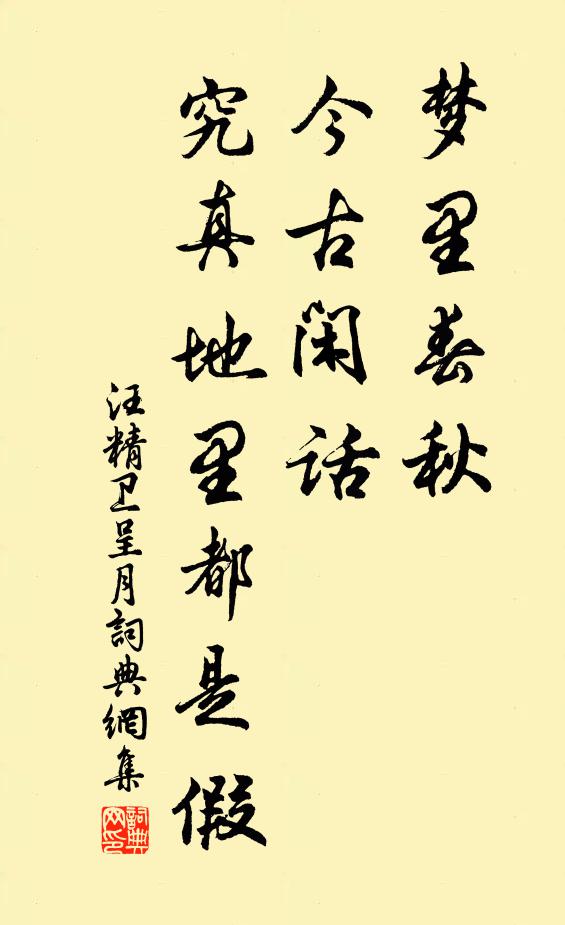 梦里春秋
今古闲话
究真地里都是假
汪精卫呈月詞典網集
詞典网印